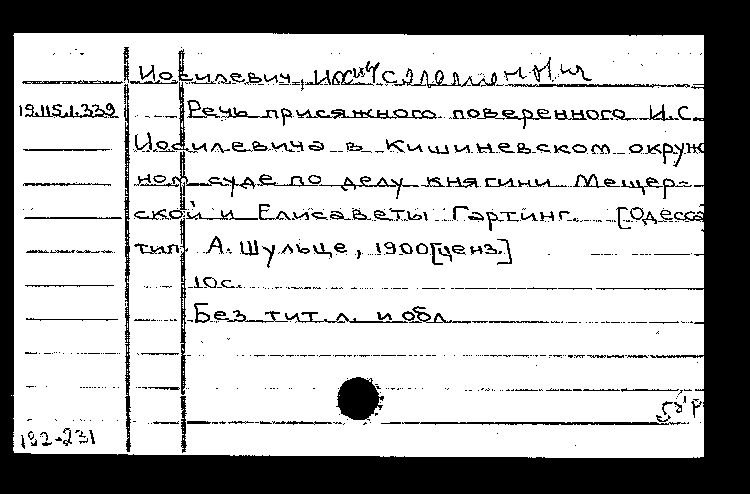 Иосилевич, Иосиф Соломонович
19.115.1.339 Речь присяжного поверенного И.С.
Иосилевича в Кишиневском окруж
ном суде по делу княгини Мещер-
ской и Елисаветы Гартинг. [Одесса]
тип. А. Шульце, 1900[ценз.]
10с.
Без тит. л. и обл
192-231